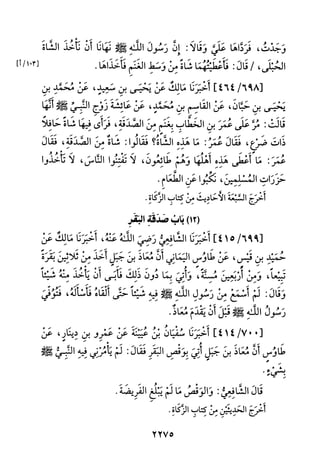 وَجَدْتُ، فَرَدَّاهَا عَلَيَّ وَقَالَا: إِنَّ رَسُولَ اللَّهِ ﷺ نَهَانَا أَنْ نَأْخُذَ الشَّاةَ
الحُبْلَى، / قَالَ: فَأَعْطَيْتُهُمَا شَاةً مِنْ وَسَطِ الغَنَمِ فَأَخَذَاهَا. [١٠٣/أ]
[٤٦٤/٦٩٨] أَخْبَرَنَا مَالِكٌ عَنْ يَحْيَى بنِ سَعِيدٍ، عَنْ مُحَمَّدِ بنِ
يَحْيَى بنِ حَبَّانَ، عَنِ القَاسِمِ بنِ مُحَمَّدٍ، عَنْ عَائِشَةَ زَوْجِ النَّبِيِّ ﷺ أَنَّهَا
قَالَتْ: مُرَّ عَلَى عُمَرَ بنِ الخَطَّابِ بِغَنَمٍ مِنَ الصَّدَقَةِ، فَرَأَى فِيهَا شَاةً حَافِلًا
ذَاتَ ضَرْعٍ، فَقَالَ عُمَرُ: مَا هَذِهِ الشَّاةُ؟ فَقَالُوا: شَاةٌ مِنَ الصَّدَقَةِ، فَقَالَ
عُمَرُ: مَا أَعْطَى هَذِهِ أَهْلُهَا وَهُمْ طَائِعُونَ، لَا تَفْتِنُوا النَّاسَ، لَا تَأْخُذُوا
حَزَرَاتِ المُسْلِمِينَ، نَكِّبُوا عَنِ الطَّعَامِ.
أَخْرَجَ السَّبْعَةَ الأَحَادِيثَ مِنْ كِتَابِ الزَّكَاةِ.
(١٢) بَابُ صَدَقَةِ البَقَرِ
[٤١٥/٦٩٩] أَخْبَرَنَا الشَّافِعِيُّ رَضِيَ اللَّهُ عَنْهُ، أَخْبَرَنَا مَالِكٌ عَنْ
حُمَيْدِ بنِ قَيْسٍ، عَنْ طَاوُسٍ اليَمَانِي أَنَّ مُعَاذَ بنَ جَبَلٍ أَخَذَ مِنْ ثَلَاثِينَ بَقَرَةً
تَبِيعًا، وَمِنْ أَرْبَعِينَ مُسِنَّةً، وَأُتِيَ بِمَا دُونَ ذَلِكَ فَأَبَى أَنْ يَأْخُذَ مِنْهُ شَيْئًا
وَقَالَ: لَمْ أَسْمَعْ مِنْ رَسُولِ اللَّهِ ﷺ فِيهِ شَيْئًا حَتَّى أَلْقَاهُ فَأَسْأَلَهُ، فَتُوُفِّيَ
رَسُولُ اللَّهِ ﷺ قَبْلَ أَنْ يَقْدَمَ مُعَاذٌ.
[٤١٤/٧٠٠] أَخْبَرَنَا سُفْيَانُ بْنُ عُيَيْنَةَ عَنْ عَمْرِو بنِ دِينَارٍ، عَنْ
طَاوُسٍ أَنَّ مُعَاذَ بنَ جَبَلٍ أُتِيَ بِوَقْصِ البَقَرِ فَقَالَ: لَمْ يَأْمُرْنِي فِيهِ النَّبِيُّ ﷺ
بِشَيْءٍ.
قَالَ الشَّافِعِيُّ: وَالوَقْصُ مَا لَمْ يَبْلُغِ الفَرِيضَةَ.
أَخْرَجَ الحَدِيثَيْنِ مِنْ كِتَابِ الزَّكَاةِ.
٢٢٧٥